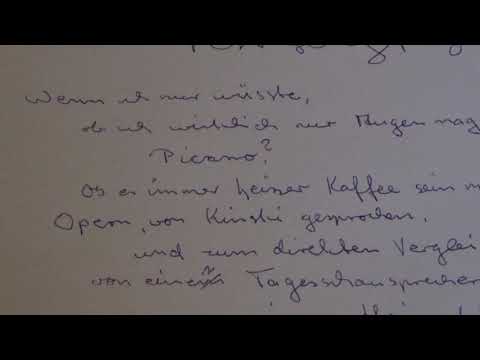 Wenn ich nur wüsste,
ob ich wirklich nur Augen mag
Picano?
Ob es immer heisser Kaffee sein m
Opern, von Kinski gesprochen,
und zum direkten Verglei
von einem Tagesschausprecher